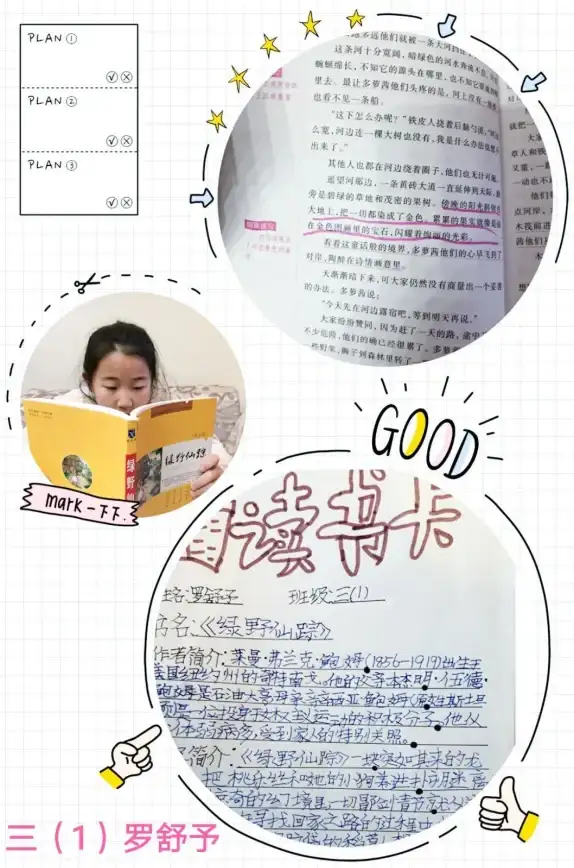 PLAN ①
PLAN ②
PLAN ③
这条河十分宽阔，暗绿色的河水
蜿蜒绵长，不知它的源头在哪里，也不知它
里去。最让多萝茜他们头疼的是，河上没有
也看不见一条船。
"这下怎么办呢？"铁皮人挠着后脑勺说，
么宽，河边连一棵大树也没有，我是什么办法也
出来了。"
其他人也都在河边绕着圈子，他们也无计可施。
遥望河那边，一条黄砖大道一直延伸到天际，
旁是碧绿的草地和茂密的果树。傍晚的阳光斜
大地上，把一切都染成了金色。累累的果实就像是
在金色图画里的宝石，闪耀着绚丽的光彩。
看着这童话般的境界，多萝茜他们的心早飞到了
对岸，陶醉在诗情画意里。
天渐渐暗下来，可大家仍然没有商量出一个妥善
的办法。多萝茜说：
"今天先在河边露宿吧，等到明天再说。"
大家纷纷赞同，因为赶了一天的路，途中
不少危险，他们的确已经很累了。多萝
一些野果，狮子到森林里转了
绿野仙踪
绿野仙踪
mark一下下.
GOOD
读书卡
姓名:罗舒予 班级:三(1)
书名:《绿野仙踪》
作者简介:莱曼·弗兰克·鲍姆(1856-1919)出生于
美国纽约州的奇特南戈。他的父亲本杰明·伍德·
鲍姆是石油大亨母亲辛西亚·鲍姆(原姓斯坦
则是一位投身于女权主义运动的积极分子。他从
体弱病疾,受到家人的特别关照。
简介:《绿野仙踪》一块突如其来的龙
把桃乐丝和她的小狗
寻找回家之路的过程中
三（1）罗舒予